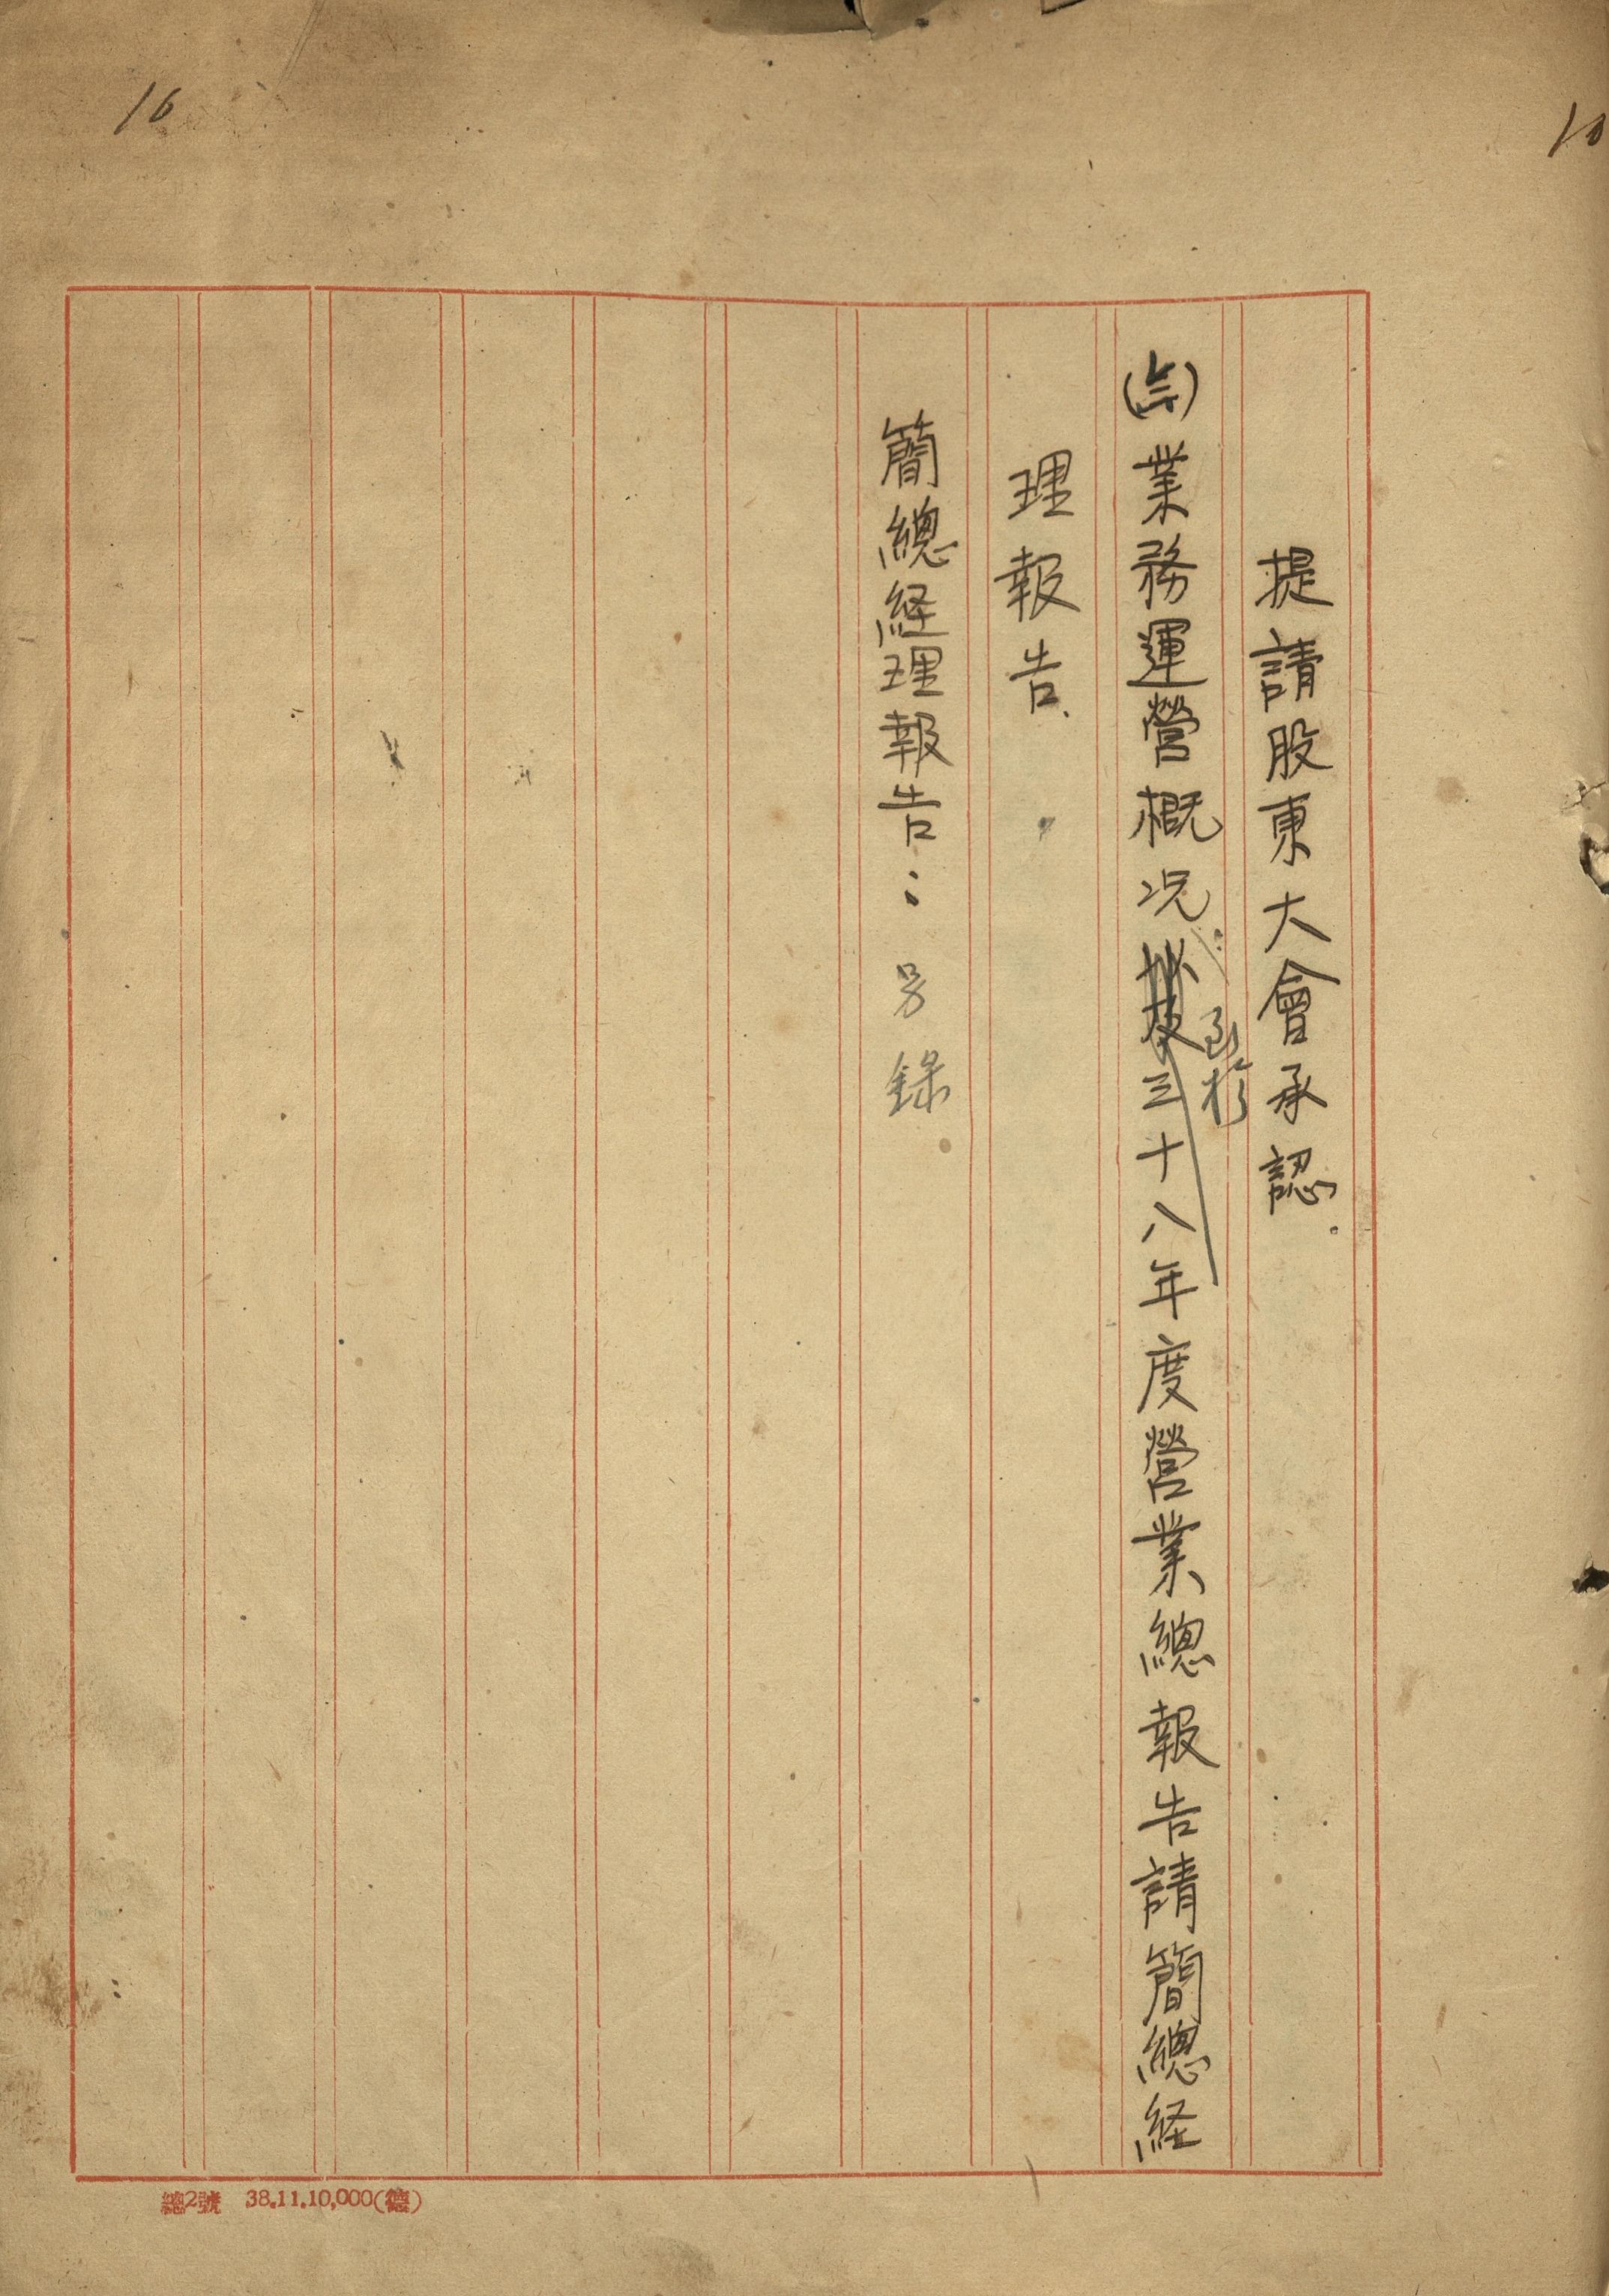 16
10
提請股東大會承認.
業務運營概況:至於三十八年度營業總報告請簡總経
理報告、
簡總経理報告:另錄
總2號 38.11.10,000(德)